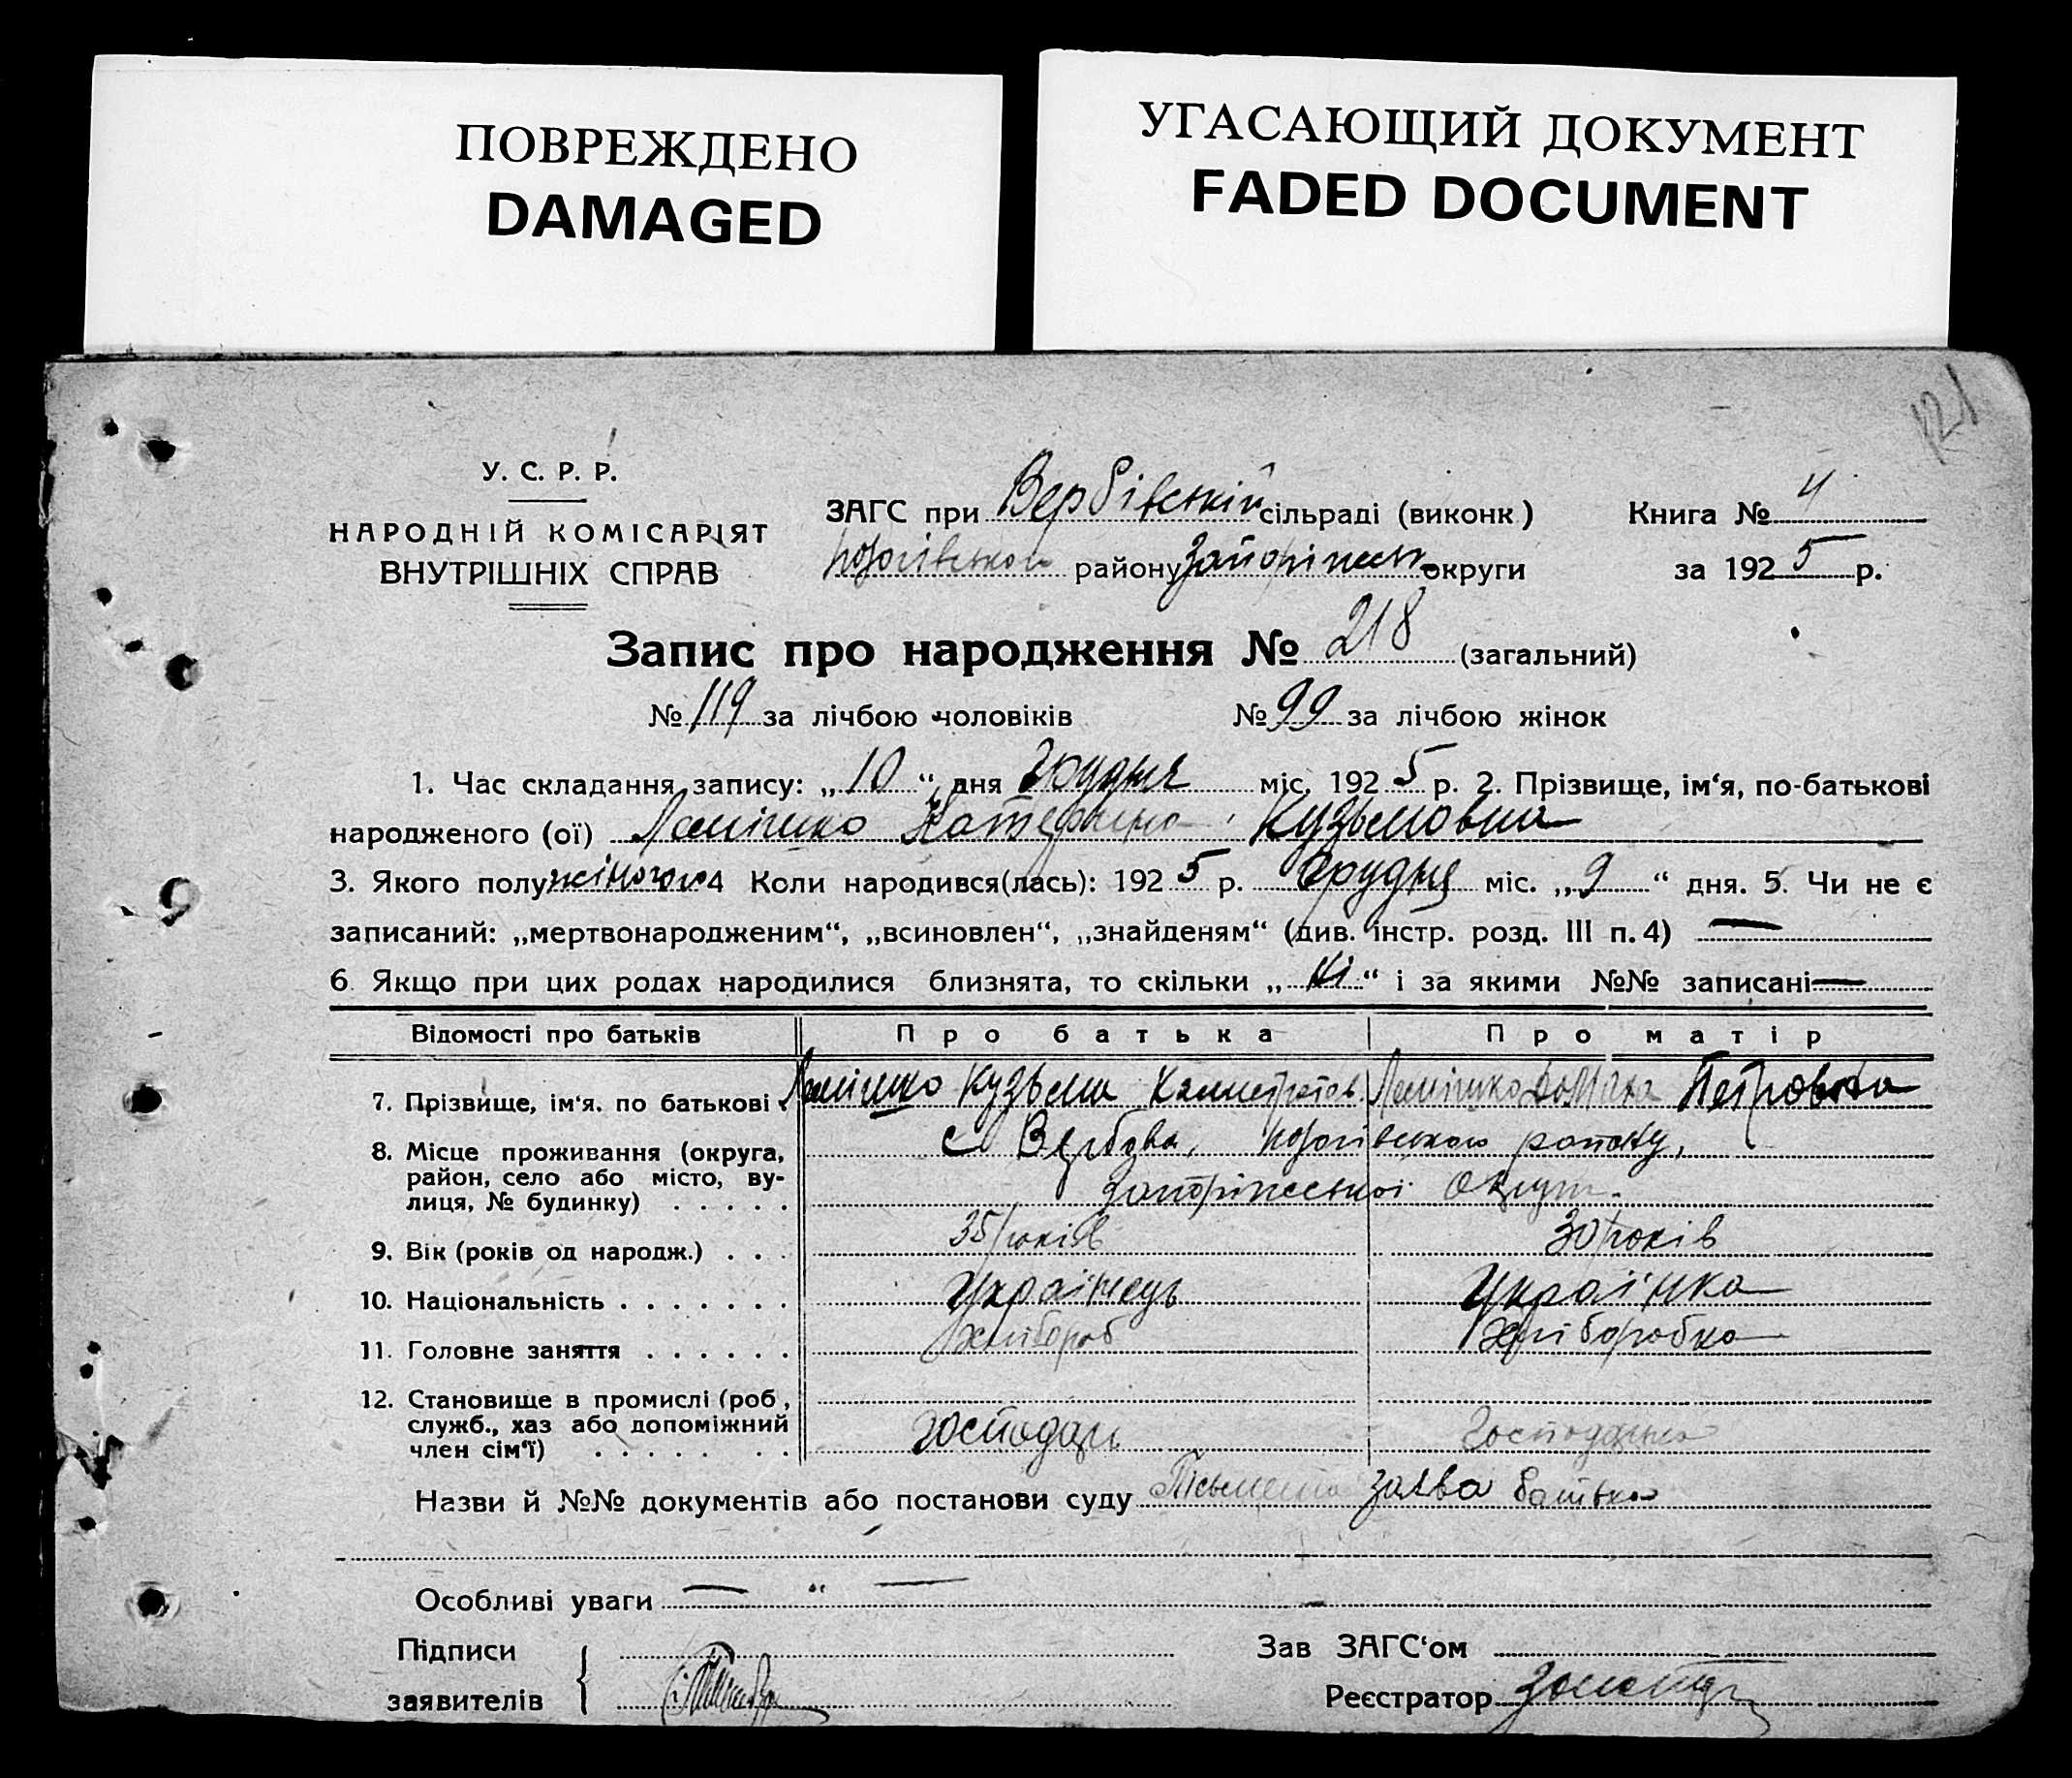 ПОВРЕЖДЕНО
DAMAGED
УГАСАЮЩИЙ ДОКУМЕНТ
FADED DOCUMENT
121
У. С. Р. Р.
НАРОДНІЙ КОМІСАРІЯТ
ВНУТРІШНІХ СПРАВ
ЗАГС при Вербівській сільраді (виконк)
району округи
Книга № 4
за 1925 р.
Запис про народження № 218 (загальний)
№ 119 за лічбою чоловіків № 99 за лічбою жінок
1. Час складання запису: „10“ дня Грудня міс. 1925 р. 2. Прізвище, ім‘я, по-батькові
народженого (ої) Катерина Кузьмовна
3. Якого полу жіночого 4 Коли народився(лась): 1925 р. Грудня міс. „9“ дня. 5. Чи не є
записаний: „мертвонародженим“, „всиновлен“, „знайденям“ (див. інстр. розд. III п. 4) —
6. Якщо при цих родах народилися близнята, то скільки „ні“ і за якими №№ записані —
Відомості про батьків Про батька Про матір
7. Прізвище, ім‘я. по батькові Кузьма Петровна
8. Місце проживання (округа, район, село або місто, ву-лиця, № будинку) . . . . .
с Вербова, району,
9. Вік (років од народж.) . . . 35 років 30 років
10. Національність . . . . . . . Українець Українка
11. Головне заняття . . . . . . Хлібороб Хліборобка
12. Становище в промислі (роб, служб., хаз або допоміжний член сім‘ї) . . . . . . .
господар Господарка
Назви й №№ документів або постанови суду Письмена заява батька
Особливі уваги — “ —
Підписи
заявителів
Зав ЗАГС‘ом
Реєстратор